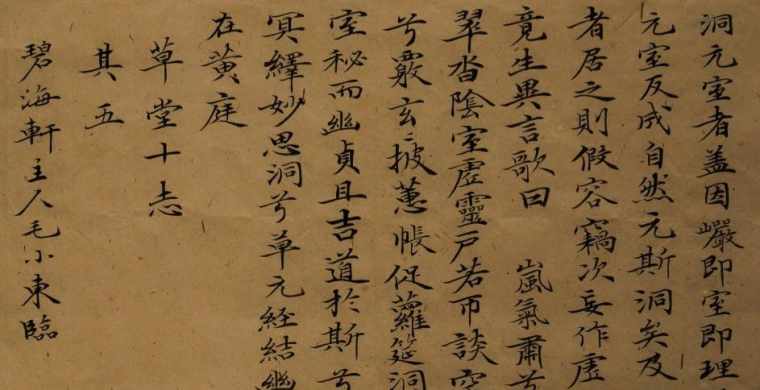 洞元室者盖因巗即室即理
元室反成自然元斯洞矣及
者居之則假容竊次妄作虛
竟生異言歌曰 嵐氣肅兮
翠沓陰室虛靈戶若帀談空
兮覈玄〻披蕙帳促蘿筵洞
室秘而幽貞且吉道於斯兮
冥繹妙思洞兮草元経結幽
在黃庭
草堂十志
其五
碧海軒主人毛小東臨